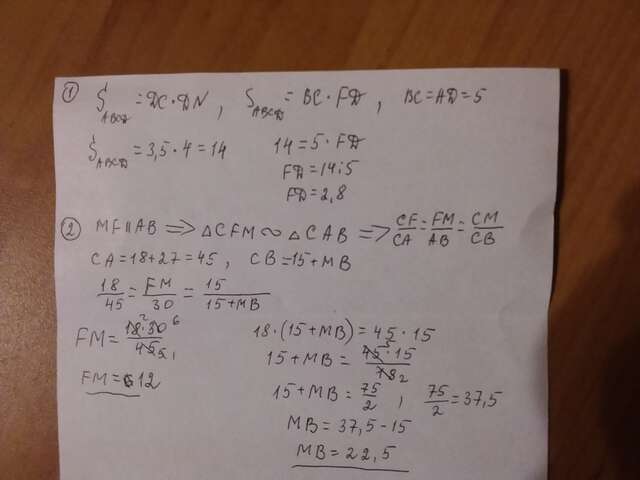 ① S_ABCD = DC·DN, S_ABCD = BC·FD, BC=AD=5
S_ABCD = 3,5·4=14 14=5·FD
FD=14:5
FD=2,8
② MF||AB ⟹ △CFM ∾ △CAB ⟹ CF/CA = FM/AB = CM/CB
CA=18+27=45, CB=15+MB
18/45 = FM/30 = 15/(15+MB)
FM= 18·30/45 18·(15+MB)=45·15
15+MB= 45·15/18
FM=12 15+MB= 75/2, 75/2=37,5
MB=37,5-15
MB=22,5